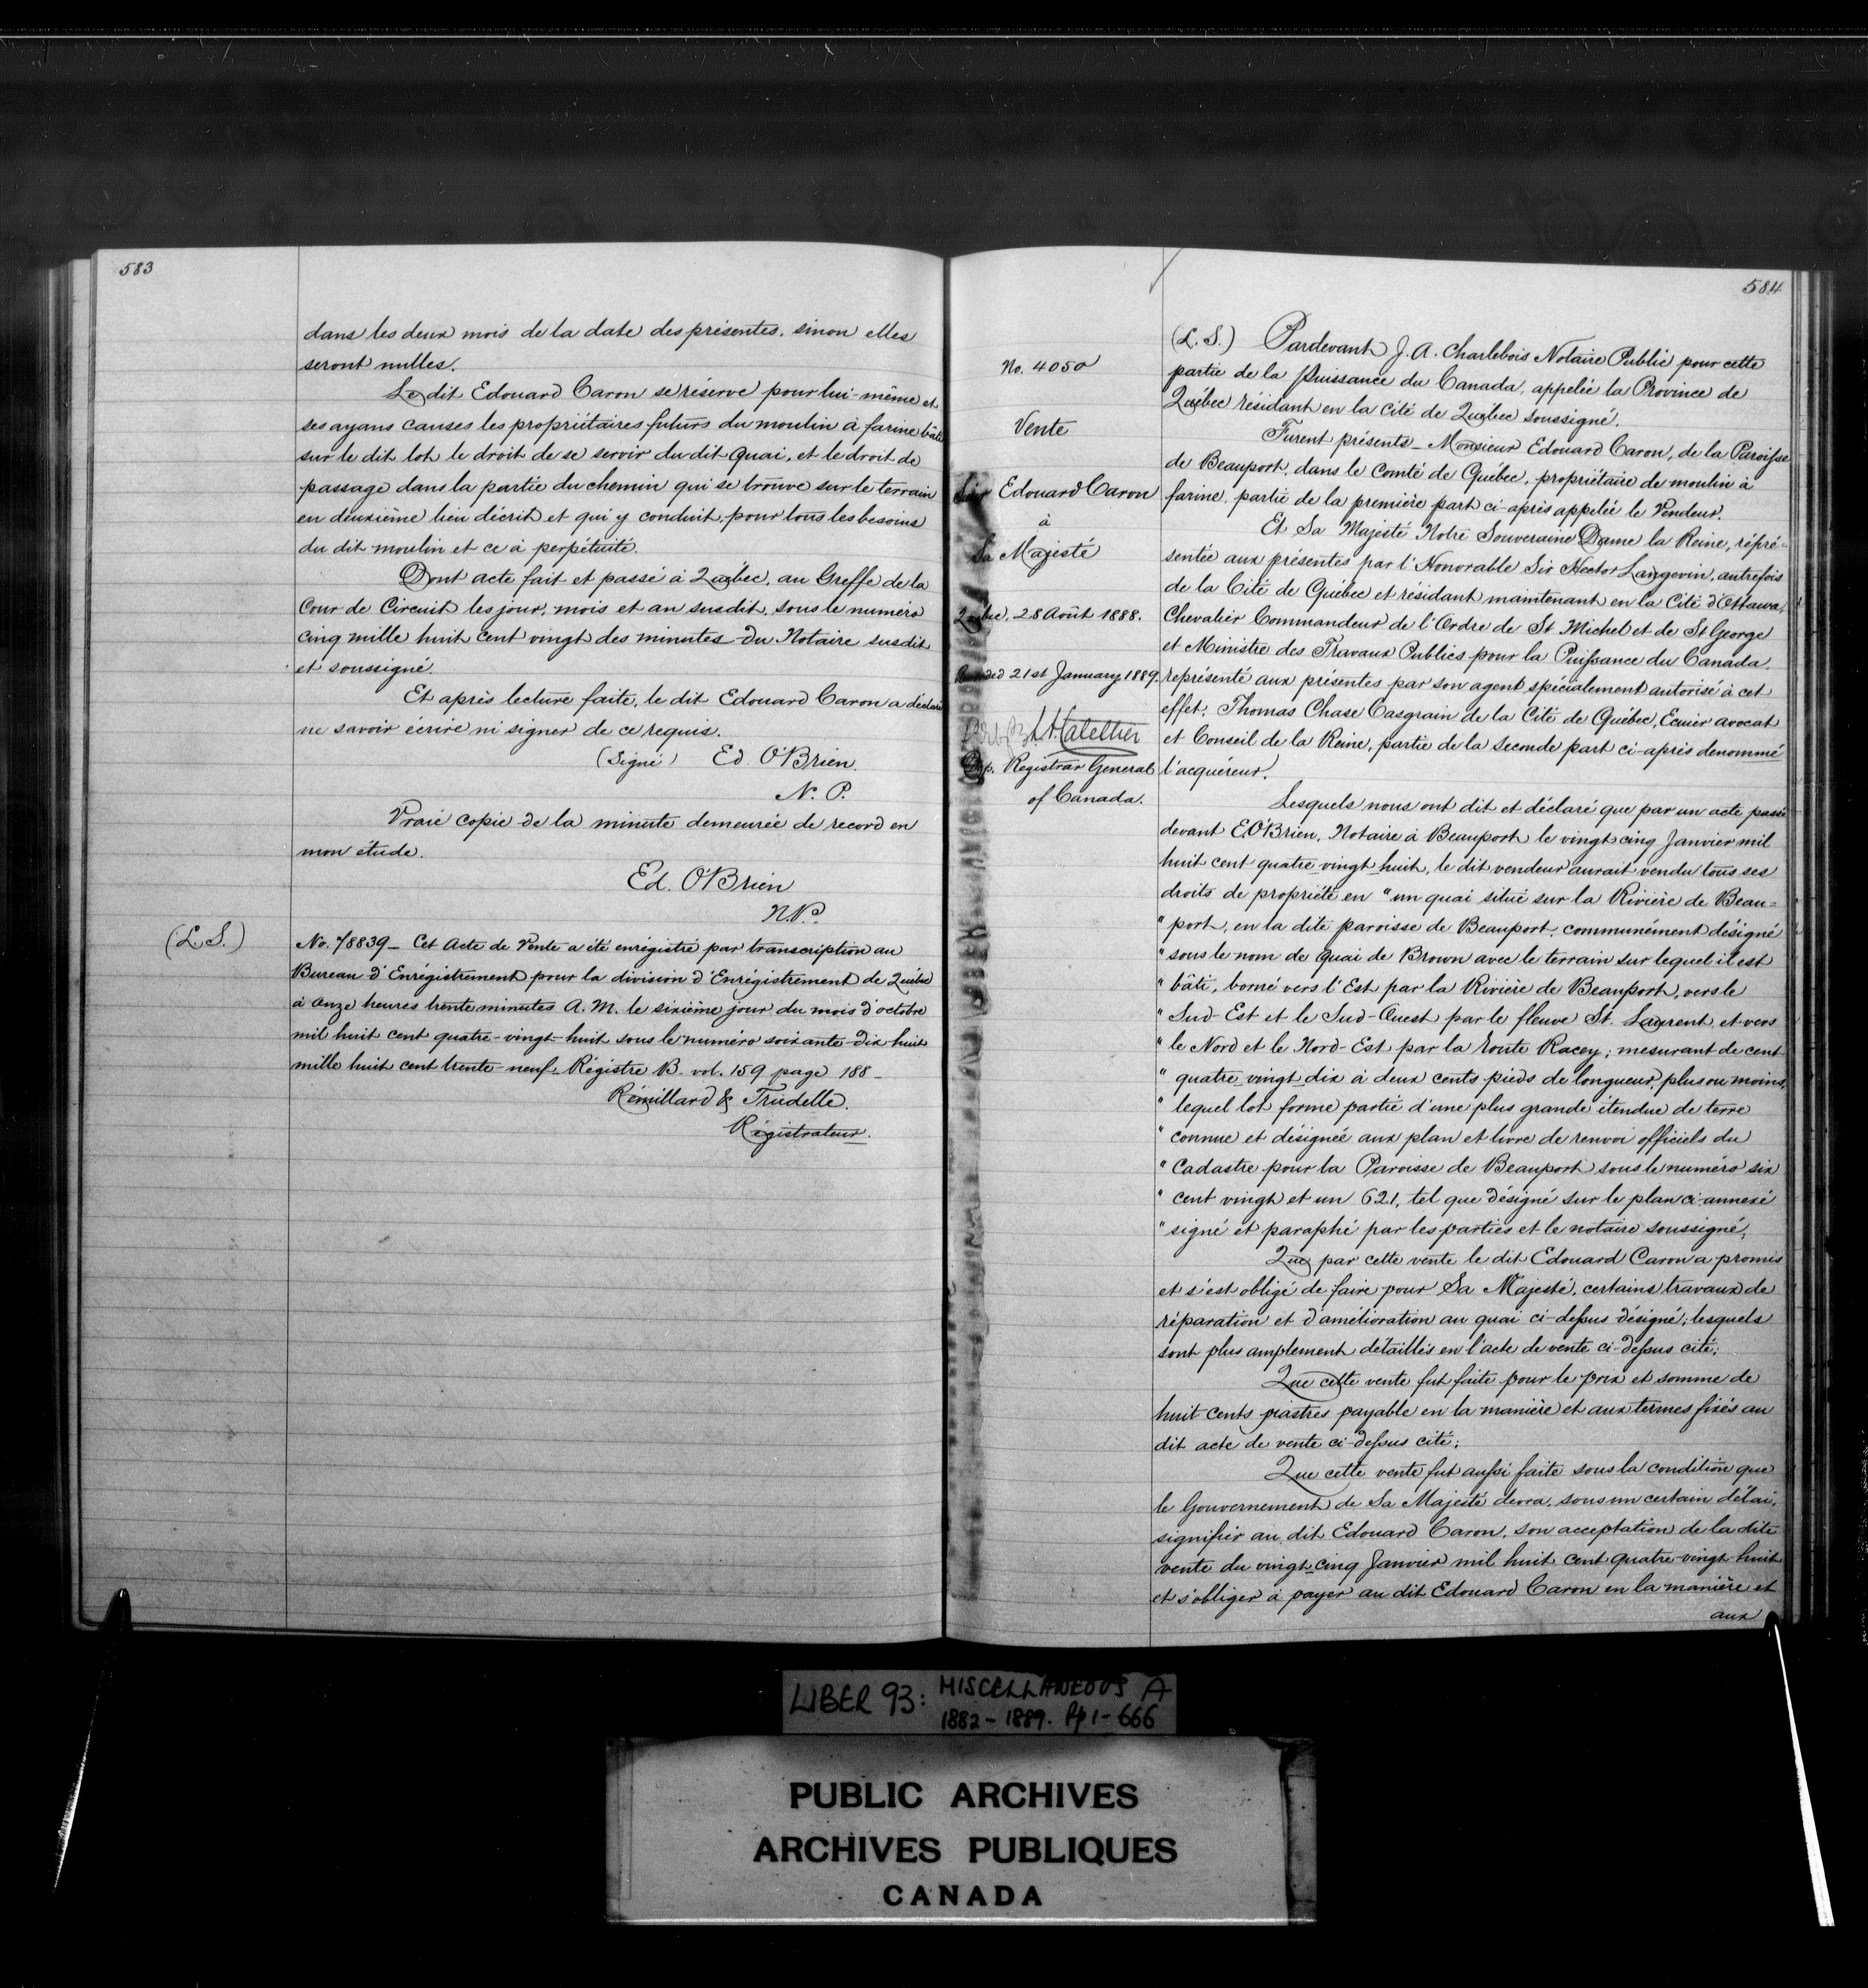 583
dans les deux mois de la date des présentes, sinon elles
seront nulles.
Le dit Edouard Caron se réserve pour lui-même et
ses ayans causes les propriétaires futurs du moulin à farine bâti
sur le dit lot le droit de se servir du dit quai, et le droit de
passage dans la partie du chemin qui se trouve sur le terrain
en deuxième lieu décrit et qui y conduit, pour tous les besoins
du dit moulin et ce à perpétuité.
Dont acte fait et passé à Québec, au Greffe de la
Cour de Circuit les jour, mois et an susdit, sous le numéro
cinq mille huit cent vingt des minutes du Notaire susdit
et soussigné.
Et après lecture faite, le dit Edouard Caron a déclaré
ne savoir écrire ni signer de ce requis.
(Signé) Ed. O'Brien
N. P.
Vraie copie de la minute demeurée de record en
mon étude.
Ed. O'Brien
N.P.
(L.S.)
No. 78839 - Cet Acte de Vente a été enrégistré par transcription au
Bureau d'Enrégistrement pour la division d'Enrégistrement de Québec
à onze heures trente minutes A.M. le sixième jour du mois d'octobre
mil huit cent quatre-vingt-huit sous le numéro soixante-dix-huit
mille huit cent trente-neuf. Régistre B. vol. 159 page 188 -
Rémillard & Trudelle.
Régistrateur.
584
No. 4050
Vente
Edouard Caron
à
Sa Majesté
Québec, 28 Août 1888.
21st January 1889.
Dep. Registrar General
of Canada.
(L. S.) Pardevant J. A. Charlebois Notaire Public pour cette
partie de la Puissance du Canada, appelée la Province de
Québec résidant en la cité de Québec soussigné.
Furent présents - Monsieur Edouard Caron, de la Paroisse
de Beauport, dans le Comté de Québec, propriétaire de moulin à
farine, partie de la première part ci-après appelée le Vendeur.
Et Sa Majesté Notre Souveraine Dame la Reine, répré-
sentée aux présentes par l'Honorable Sir Hector Langevin, autrefois
de la Cité de Québec et résidant maintenant en la Cité d'Ottawa,
Chevalier Commandeur de l'Ordre de St. Michel et de St George
et Ministre des Travaux Publics pour la Puissance du Canada,
représenté aux présentes par son agent spécialement autorisé à cet
effet, Thomas Chase Casgrain de la Cité de Québec, Ecuier avocat
et Conseil de la Reine, partie de la seconde part ci-après denommé
l'acquéreur.
Lesquels nous ont dit et déclaré que par un acte passé
devant E. O'Brien, Notaire à Beauport le vingt cinq Janvier mil
huit cent quatre vingt huit, le dit vendeur aurait vendu tous ses
droits de propriété en "un quai situé sur la Rivière de Beau-
"port, en la dite paroisse de Beauport, communément désigné
"sous le nom de quai de Brown avec le terrain sur lequel il est
"bâti, borné vers l'Est par la Rivière de Beauport, vers le
"Sud-Est et le Sud-Ouest par le fleuve St. Laurent, et vers
"le Nord et le Nord-Est par la route Racey; mesurant de cent
"quatre vingt dix à deux cents pieds de longueur plus ou moins,
"lequel lot forme partie d'une plus grande étendue de terre
"connue et désignée aux plan et livre de renvoi officiels du
"Cadastre pour la Paroisse de Beauport sous le numéro six
"cent vingt et un 621, tel que désigné sur le plan ci-annexé
"signé et paraphé par les parties et le notaire soussigné,
Que par cette vente le dit Edouard Caron a promis
et s'est obligé de faire pour Sa Majesté, certains travaux de
réparation et d'amélioration au quai ci-dessus désigné; lesquels
sont plus amplement détaillés en l'acte de vente ci-dessus cité;
Que cette vente fut faite pour le prix et somme de
huit cents piastres payable en la manière et aux termes fixés au
dit acte de vente ci-dessus cité;
Que cette vente fut aussi faite sous la condition que
le Gouvernement de Sa Majesté devra, sous un certain délai,
signifier au dit Edouard Caron, son acceptation de la dite
vente du vingt-cinq Janvier mil huit cent quatre-vingt-huit
et s'obliger à payer au dit Edouard Caron en la manière et
aux
LIBER 93: MISCELLANEOUS A
1882-1889. Pp 1-666
PUBLIC ARCHIVES
ARCHIVES PUBLIQUES
CANADA